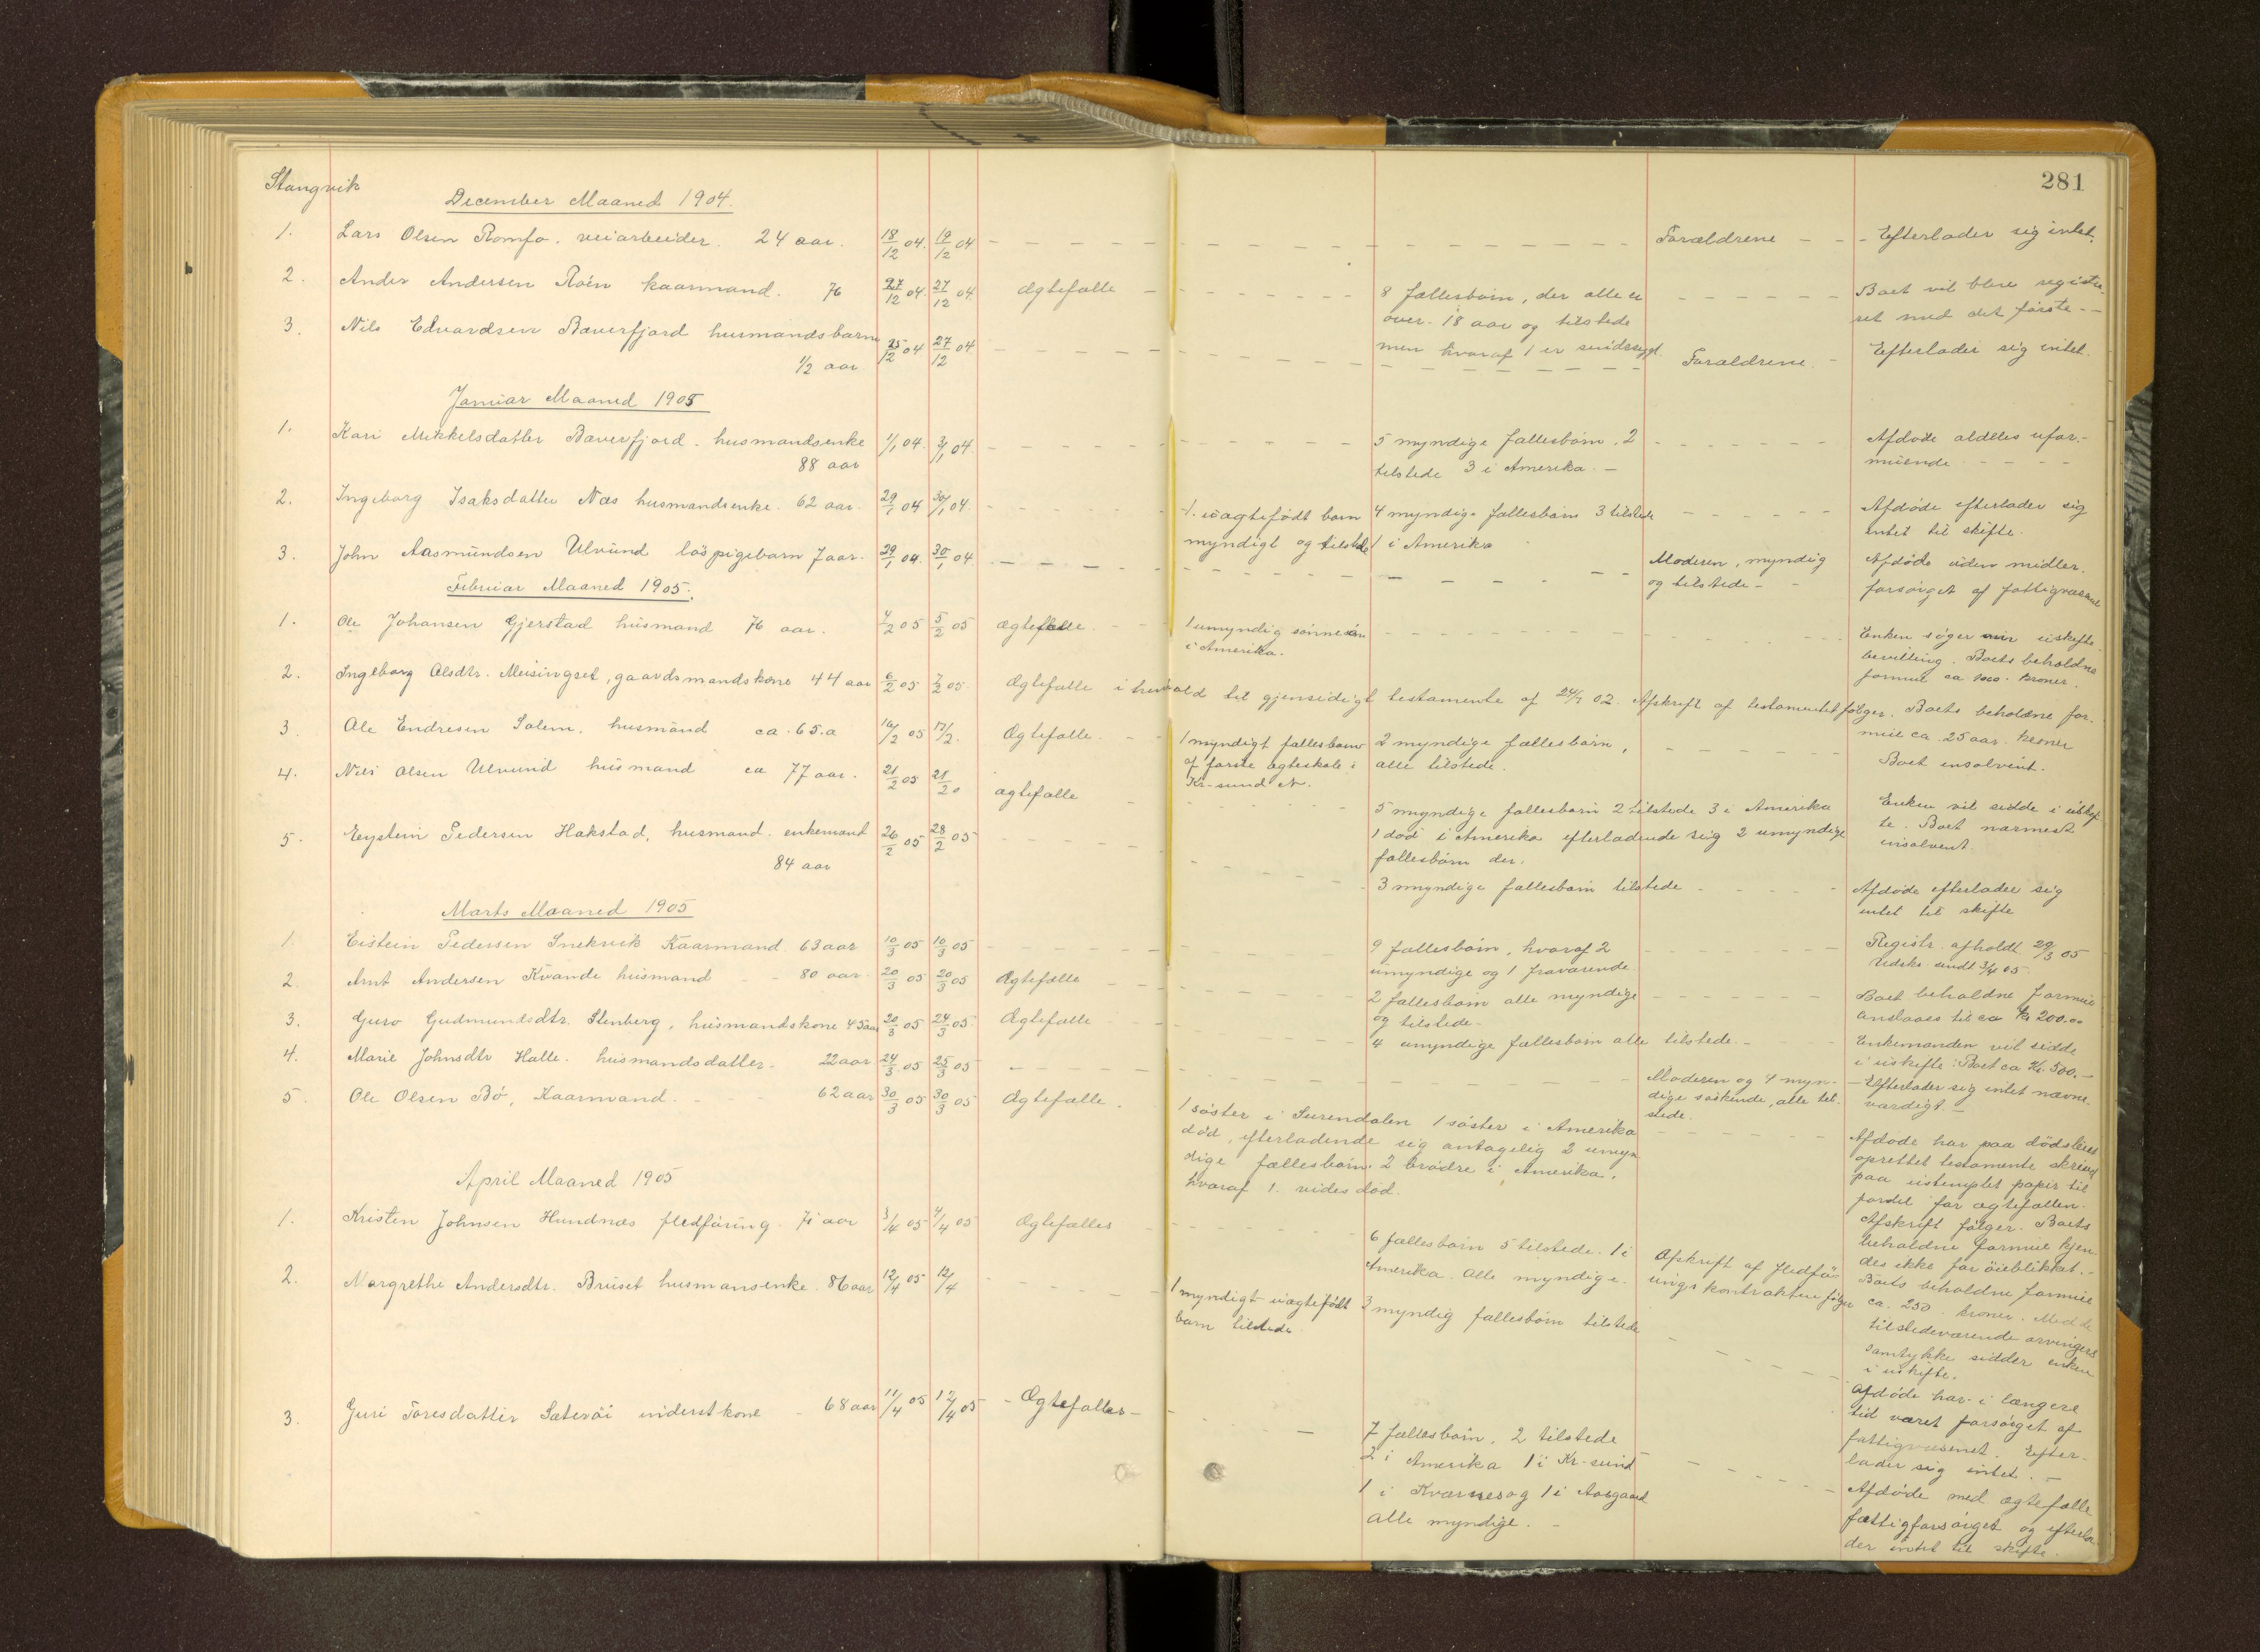 281
Stangvik
December Maaned 1904.
1. Lars Olsen Romfo. veiarbeider. 24 aar. 18/12 04. 19/12 04 Forældrene - - Efterlader sig intet.
2. Ander Andersen Roën kaarmand. 76 27/12 04. 27/12 04. Ægtefælle 8 fællesbørn, der alle er Boet vil blive registre-
over 18 aar og tilstede ret med det første - -
men hvoraf 1 er sindssygt.
3. Nils Edvardsen Bæverfjord husmandsbarn 25/12 04 27/12 04 Forældrene. - Efterlader sig intet.
1/2 aar
Januar Maaned 1905
1. Kari Mikkelsdatter Bæverfjord. husmandsenke 1/1 04. 3/1 04. 5 myndige fællesbørn. 2 Afdøde aldeles ufor-
88 aar tilstede 3 i Amerika. - muende
2. Ingeborg Isaksdatter Næs husmandsenke. 62 aar. 29/1 04 30/1 04. 1. uægtefødt barn 4 myndige fællesbørn 3 tilstede Afdøde efterlader sig
myndigt og tilstede 1 i Amerika intet til skifte.
3. John Aasmundsen Ulvund løspigebarn 7 aar. 29/1 04. 30/1 04 Moderen, myndig Afdøde uden midler.
og tilstede - forsørget af fattigvæsenet
Februar Maaned 1905.
1. Ole Johansen Gjerstad husmand 76 aar. 4/2 05 5/2 05 ægtefælle. 1 umyndig sønnesøn Enken søger om uskifte
i Amerika. bevilling. Boets beholdne
formue ca 1000. kroner.
2. Ingeborg Olsdtr. Meisingset, gaardmandskone 44 aar 6/2 05 7/2 05. Ægtefælle i henhold til gjensidigt testamente af 24/7 02. Afskrift af testamentet følger. Boets beholdne for-
mue ca. 25 aar. kroner
3. Ole Endresen Solem. husmand ca. 65. a 16/2 05 17/2. Ægtefælle. 1 myndigt fællesbarn 2 myndige fællesbørn, Boet insolvent.
af første ægteskab i alle tilstede.
Kr-sund N.
4. Nils Olsen Ulvund husmand ca 77 aar. 21/2 05 21/2 ægtefælle 5 myndige fællesbørn 2 tilstede 3 i Amerika Enken vil sidde i uskif
1 død i Amerika efterladende sig 2 umyndige te. Boet nærmest
fællesbørn der. insolvent.
5. Eystein Pedersen Hakstad, husmand. enkemand 26/2 05 28/2 05 3 myndige fællesbørn tilstede Afdøde efterlader sig
84 aar intet til skifte
Marts Maaned 1905
1. Eistein Pedersen Snekvik Kaarmand 63 aar 10/3 05 10/3 05 9 fællesbørn, hvoraf 2 Registr. afholdt 29/3 05
umyndige og 1 fraværende Udskr. sendt 3/4 05.
2. Arnt Andersen Kvande husmand - 80 aar. 20/3 05 20/3 05 Ægtefælle 2 fællesbørn alle myndige Boet beholdne formue
og tilstede - anslaaes til ca Kr 200.00
3. Guro Gudmundsdtr. Stenberg, husmandskone 45 aar 20/3 05. 24/3 05. Ægtefælle 4 umyndige fællesbørn alle tilstede. - Enkemanden vil sidde
i uskifte. Boet ca Kr. 500. -
4. Marie Johnsdtr Halle. husmandsdatter. 22 aar 24/3 05 25/3 05 Moderen og 4 myn- - Efterlader sig intet nævne
dige søskende, alle til- værdigt -
stede.
5. Ole Olsen Bø, Kaarmand. 62 aar 30/3 05 30/3 05 Ægtefælle. 1 søster i Surendalen 1 søster i Amerika Afdøde har paa dødsleiet
død, efterladende sig antagelig 2 umyn oprettet testamente skrevet
dige fællesbørn. 2 brødre i Amerika, paa ustemplet papir til
hvoraf 1. vides død. fordel for ægtefællen.
Afskrift følger. Boets
beholdne formue kjen-
des ikke for øieblikket. -
April Maaned 1905
1. Kristen Johnsen Hundnæs fledføring. 71 aar 3/4 05 4/4 05 Ægtefælles 6 fællesbørn 5 tilstede. 1 i Afskrift af fledfør- Boets beholdne formue
Amerika. Alle myndige. ingskontrakten følger ca. 250. kroner. Med de
tilstedeværende arvingers
samtykke sidder enken
i uskifte.
2. Margrethe Andersdtr. Bruset husmansenke. 86 aar 12/4 05 12/4 1 myndigt uægtefødt 3 myndig fællesbørn tilstede Afdøde har i længere
barn tilstede. tid været forsørget af
fattigvæsenet. Efter-
lader sig intet. -
3. Guri Toresdatter Sæterøi inderstkone - 68 aar 11/4 05 12/4 05 - Ægtefælles - 7 fællesbørn. 2 tilstede Afdøde med ægtefælle
2 i Amerika 1 i Kr-sund fattigforsørget og efterla
1 i Kværnes og 1 i Aasgaard der intet til skifte.
alle myndige. -